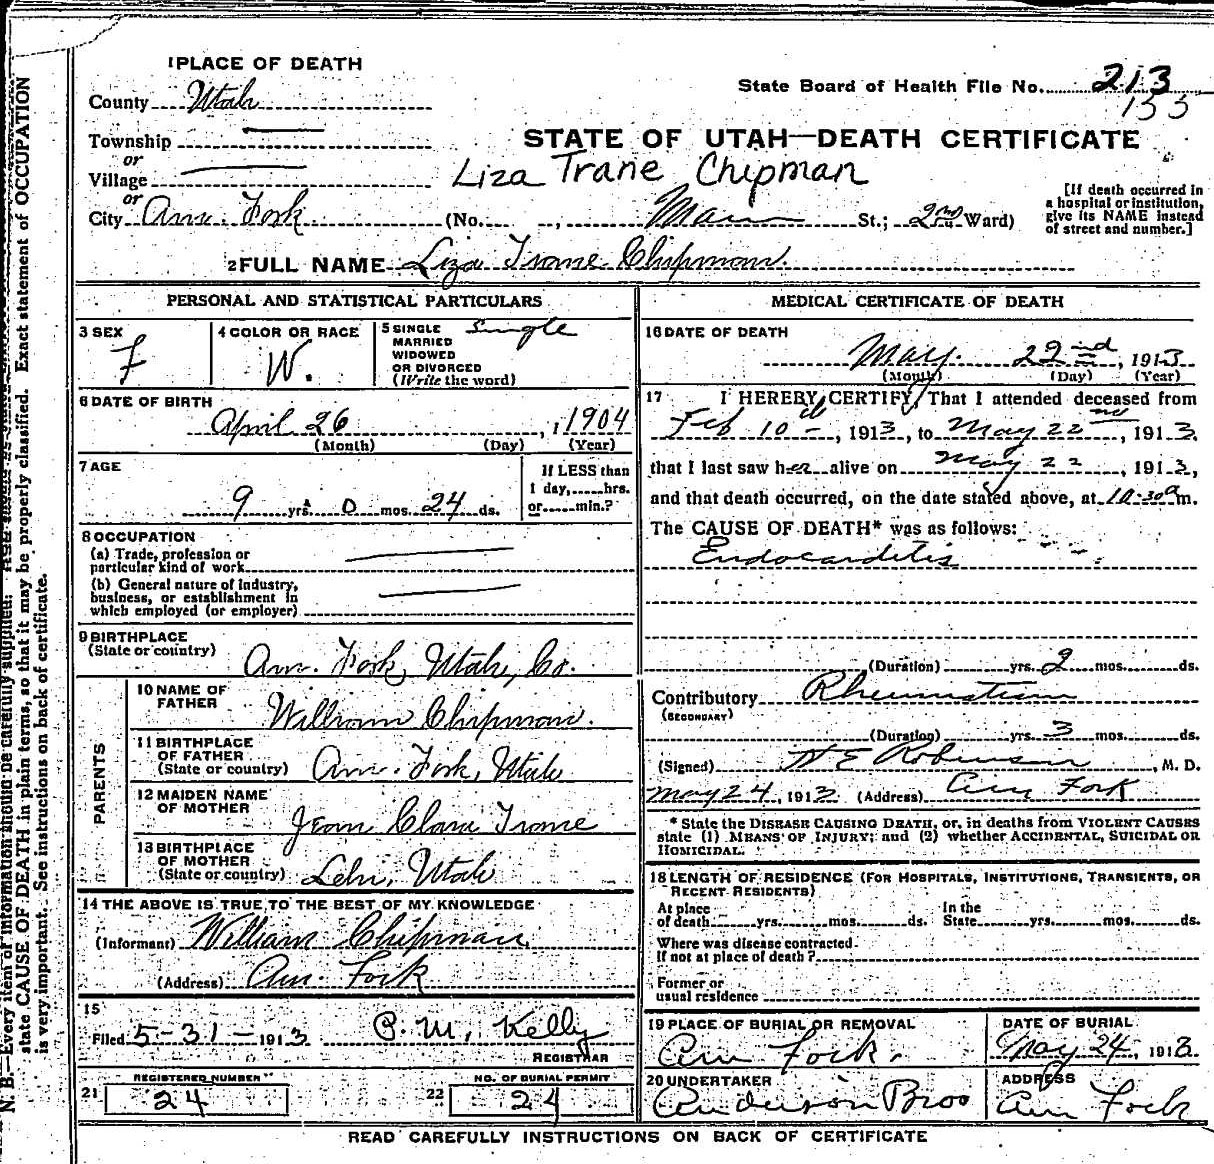 1 PLACE OF DEATH
County Utah
State Board of Health File No. 213
133
Township —
or
Village —
or
City Am. Fork (No. Main St.; 2nd Ward)
STATE OF UTAH—DEATH CERTIFICATE
Liza Trane Chipman
[If death occurred in
a hospital or institution,
give its NAME instead
of street and number.]
2 FULL NAME Liza Trane Chipman.
PERSONAL AND STATISTICAL PARTICULARS
3 SEX
F
4 COLOR OR RACE
W.
5 SINGLE Single
MARRIED
WIDOWED
OR DIVORCED
(Write the word)
6 DATE OF BIRTH
April 26, 1 1904
(Month) (Day) (Year)
7 AGE
9 yrs. 0 mos. 24 ds.
If LESS than
1 day,......hrs.
or......min.?
8 OCCUPATION
(a) Trade, profession or
particular kind of work —
(b) General nature of industry,
business, or establishment in
which employed (or employer) —
9 BIRTHPLACE
(State or country) Am. Fork, Utah, Co.
PARENTS
10 NAME OF
FATHER William Chipman.
11 BIRTHPLACE
OF FATHER
(State or country) Am. Fork, Utah
12 MAIDEN NAME
OF MOTHER Jean Clara Trane
13 BIRTHPLACE
OF MOTHER
(State or country) Lehi, Utah
14 THE ABOVE IS TRUE TO THE BEST OF MY KNOWLEDGE
(Informant) William Chipman
(Address) Am. Fork
15
Filed 5-31-1913 P. M. Kelly
REGISTRAR
21 REGISTERED NUMBER
24
22 NO. OF BURIAL PERMIT
24
MEDICAL CERTIFICATE OF DEATH
16 DATE OF DEATH
May. 22nd, 1913
(Month) (Day) (Year)
17 I HEREBY CERTIFY, That I attended deceased from
Feb 10th, 1913, to May 22nd, 1913.
that I last saw her alive on May 22, 1913,
and that death occurred, on the date stated above, at 10:30 a m.
The CAUSE OF DEATH* was as follows:
Endocarditis
(Duration) yrs. 2 mos. ds.
Contributory Rheumatism
(SECONDARY)
(Duration) yrs. 3 mos. ds.
(Signed) H E Robinson, M. D.
May 24, 1913 (Address) Am Fork
* State the DISEASE CAUSING DEATH, or, in deaths from VIOLENT CAUSES
state (1) MEANS OF INJURY; and (2) whether ACCIDENTAL, SUICIDAL OR
HOMICIDAL.
18 LENGTH OF RESIDENCE (FOR HOSPITALS, INSTITUTIONS, TRANSIENTS, OR
RECENT RESIDENTS)
At place
of death yrs. mos. ds.
In the
State yrs. mos. ds.
Where was disease contracted
if not at place of death?
Former or
usual residence
19 PLACE OF BURIAL OR REMOVAL
Am Fork.
DATE OF BURIAL
May 24, 1913
20 UNDERTAKER
Anderson Bros
ADDRESS
Am Fork
READ CAREFULLY INSTRUCTIONS ON BACK OF CERTIFICATE
N. B.—Every item of information should be carefully supplied.
state CAUSE OF DEATH in plain terms, so that it may be properly classified. Exact statement of OCCUPATION
is very important. See instructions on back of certificate.